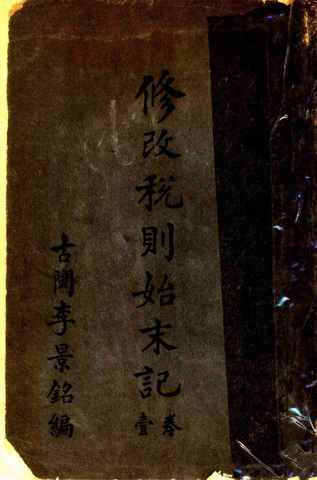 修改稅則始末記
卷壹
古閩李景銘編